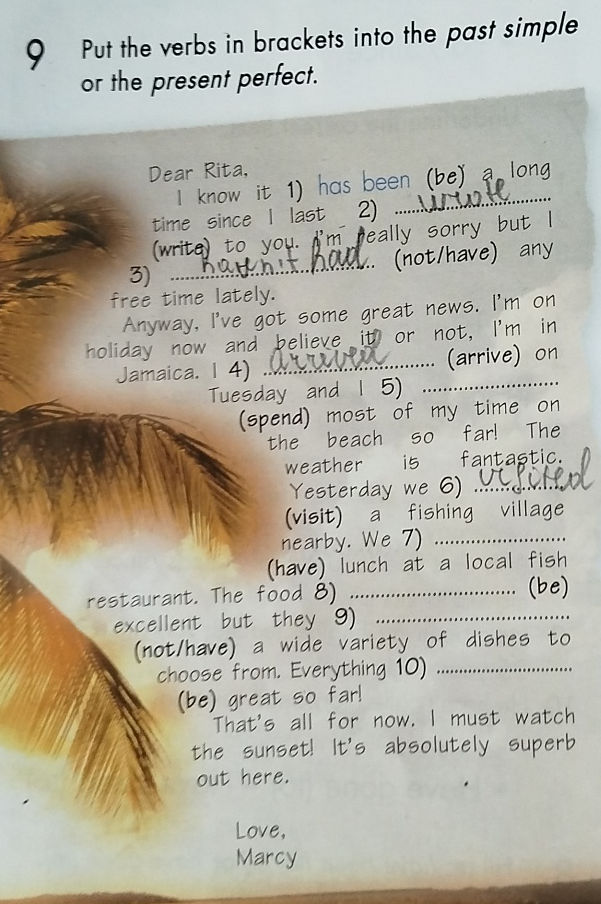 9 Put the verbs in brackets into the past simple
or the present perfect.
Dear Rita,
I know it 1) has been (be) a long
time since I last 2) wrote
(write) to you. I'm really sorry but I
3) haven't had (not/have) any
free time lately.
Anyway, I've got some great news. I'm on
holiday now and believe it or not, I'm in
Jamaica. I 4) arrived (arrive) on
Tuesday and I 5) ........................
(spend) most of my time on
the beach so far! The
weather is fantastic.
Yesterday we 6) visited
(visit) a fishing village
nearby. We 7) ........................
(have) lunch at a local fish
restaurant. The food 8) ........................ (be)
excellent but they 9) ........................
(not/have) a wide variety of dishes to
choose from. Everything 10) ........................
(be) great so far!
That's all for now. I must watch
the sunset! It's absolutely superb
out here.
Love,
Marcy